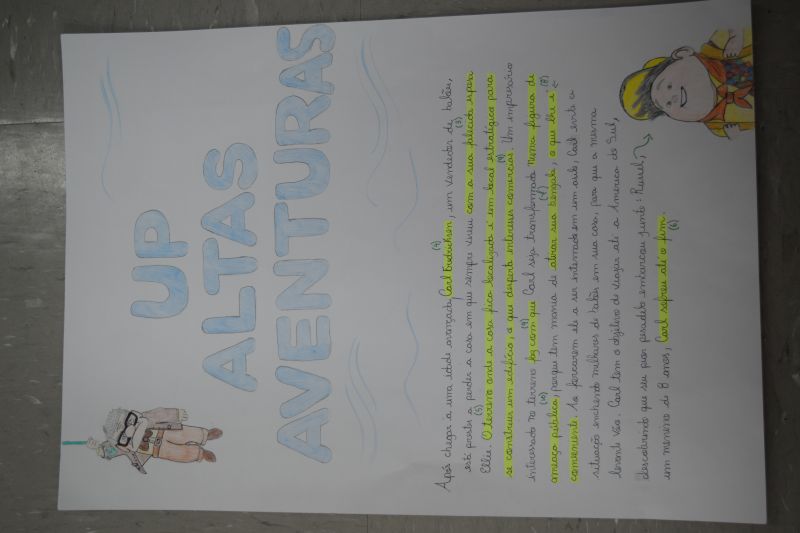 UP
ALTAS
AVENTURAS
Após chegar a uma idade avançada Carl Fredricksen, um vendedor de balões,
(1)
está prestes a perder a casa em que sempre viveu com a sua falecida esposa
(3)
Ellie. O terreno onde a casa fica localizada é um local estratégico para
(5)
se construir um edifício, o que desperta interesses comerciais. Um empresário
interessado no terreno faz com que Carl seja transformado numa figura de
(9)
ameaça pública, porque tem mania de atirar sua bengala, o que lhe é (8)
(10)
conveniente. Ao forçarem ele a ser internado em um asilo, Carl evita a
situação enchendo milhares de balões em sua casa, para que a mesma
levante vôo. Carl tem o objetivo de viajar até a América do Sul,
descobrindo que seu pior pesadelo embarcou junto: Russel,
um menino de 8 anos, Carl sofreu até o fim.
(6)